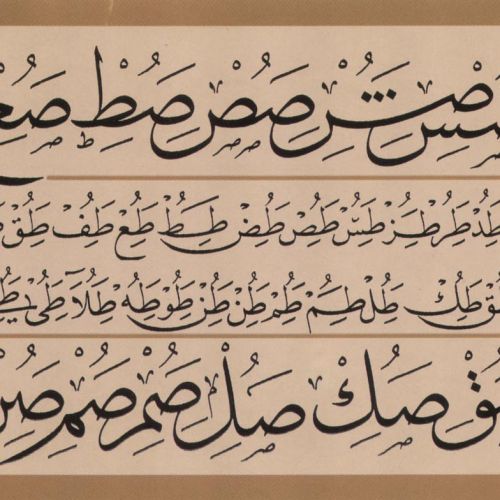 صس صش صص صط صع
طد طر طز طس طص طض طط طع طف طق
طك طل طم طم طن طن طو طه طلا طى
صق صك صل صم صم صن